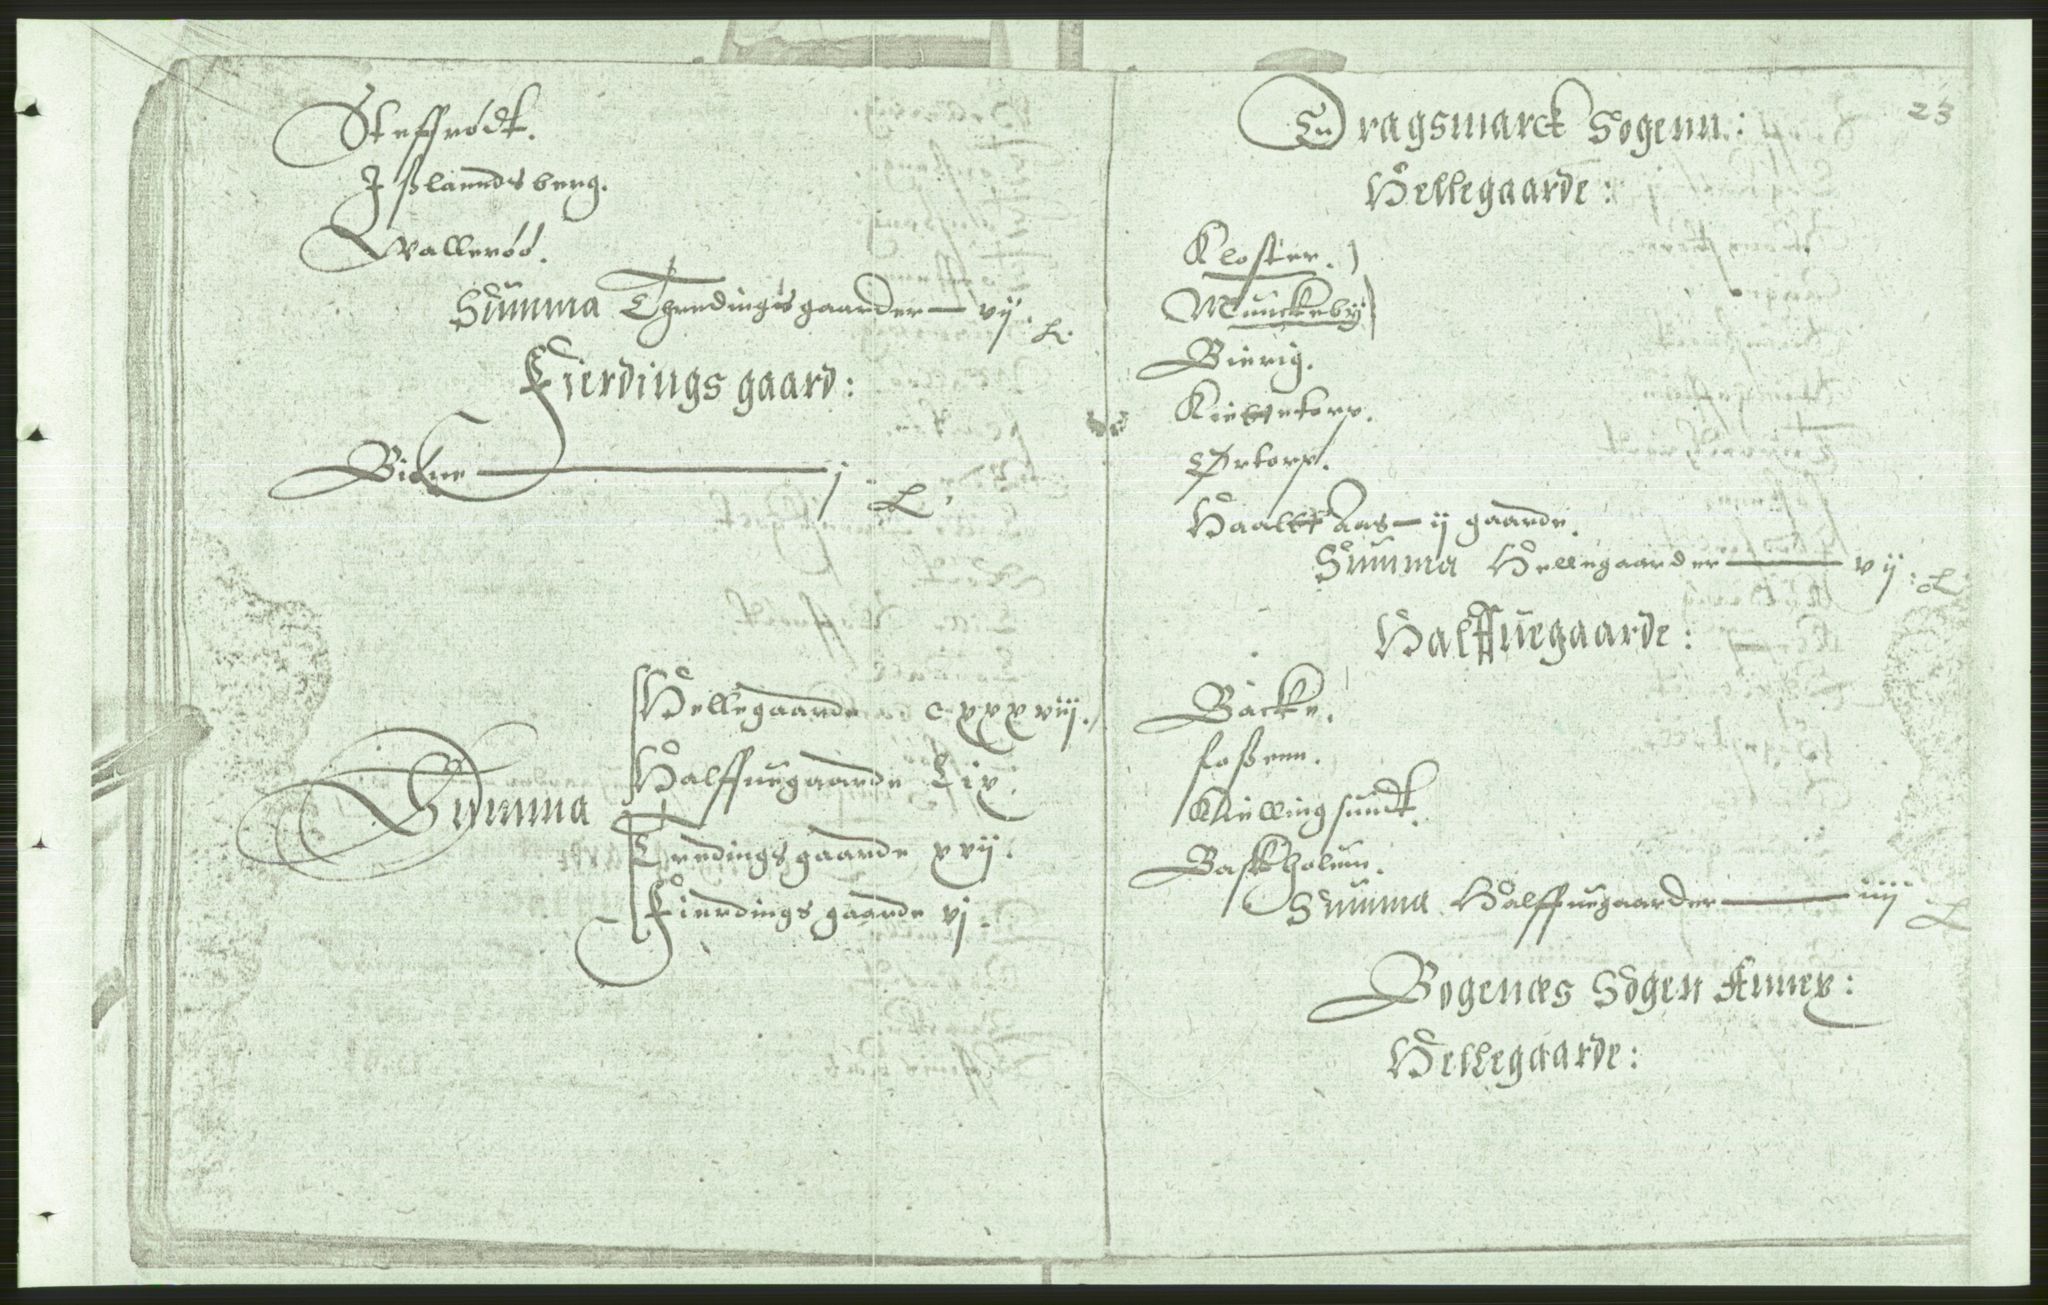 Steffrödt.
Jßlanndsberg.
Walleröd.
Summa Thredingsgaarder — vij.
Fierdingsgaard:
Bickne — j
Summa
Hellegaarde cxxxviij.
Halffuegaarde Lix.
Tredingsgaarde xvij.
Fierdingsgaarde vj.
23
Dragsmarck Sogenn:
Hellegaarde:
Kloster.
Munckeby
Bierig.
Kiettetorp.
Ørtorp.
Haaltt Aas — ij gaarde.
Summa Hellegaarder — vij:
Halffuegaarde:
Backe.
foßenn.
Kiellingsundt.
Baskholum.
Summa Halffuegaarder — iiij
Bogenæs Sogen Annex:
Hellegaarde: